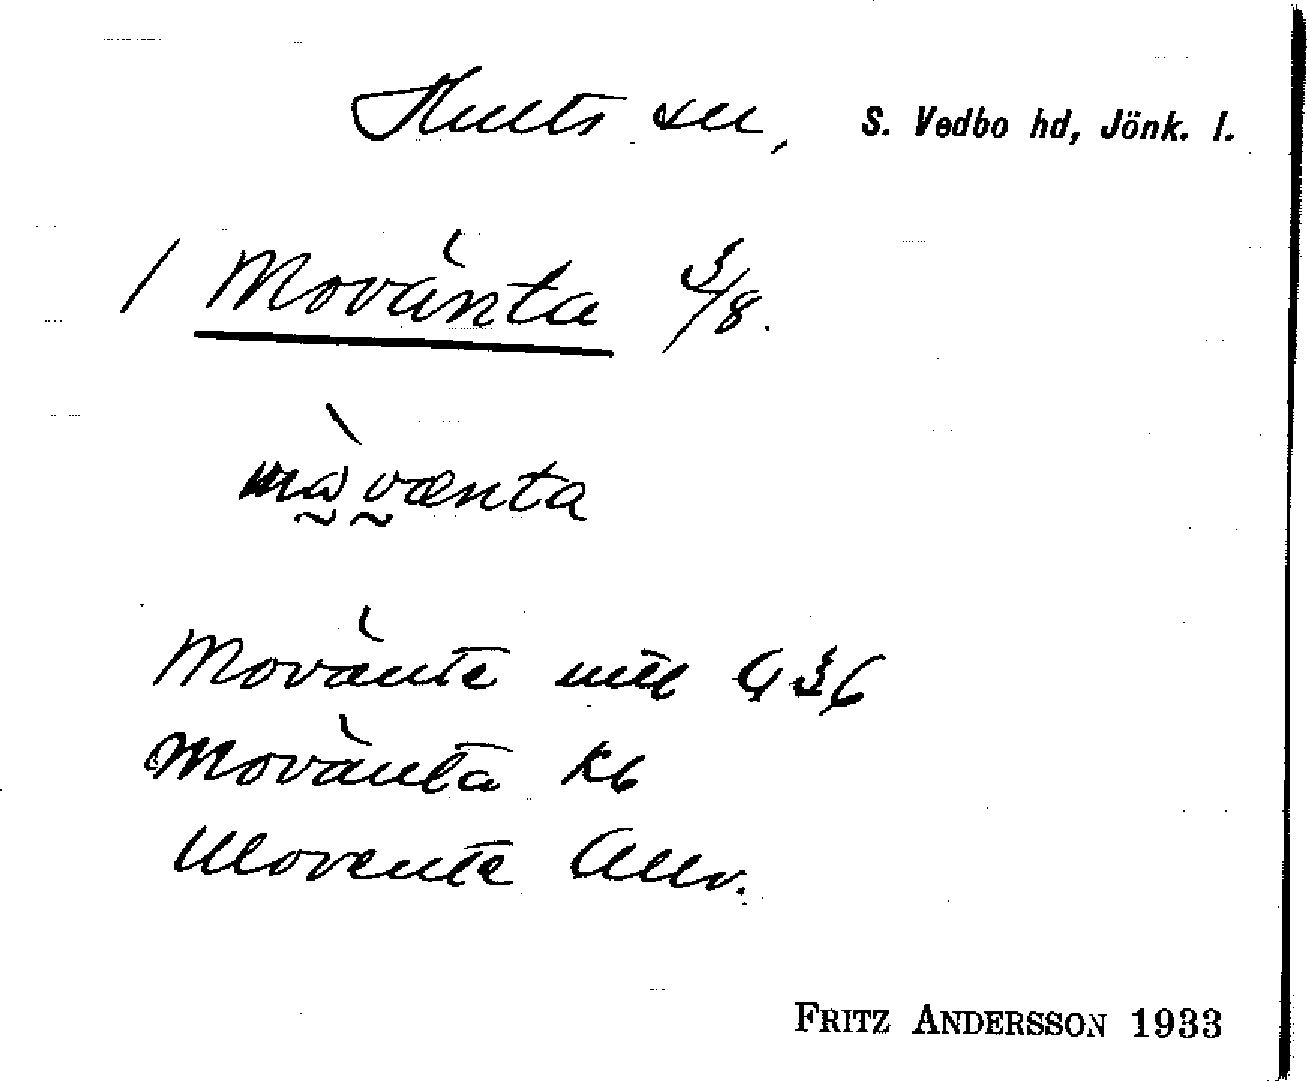 Hults sn, S. Vedbo hd, Jönk. l.
/ Movänta 3/8.
må̀vænta
Movänte mtl G 36
Movänta Kb
Movente Allm.
FRITZ ANDERSSON 1933